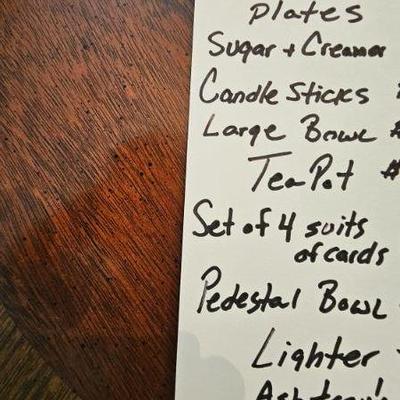 plates
Sugar + Creamer
Candle Sticks
Large Bowl #
Tea Pot $
Set of 4 suits
of cards
Pedestal Bowl
Lighter